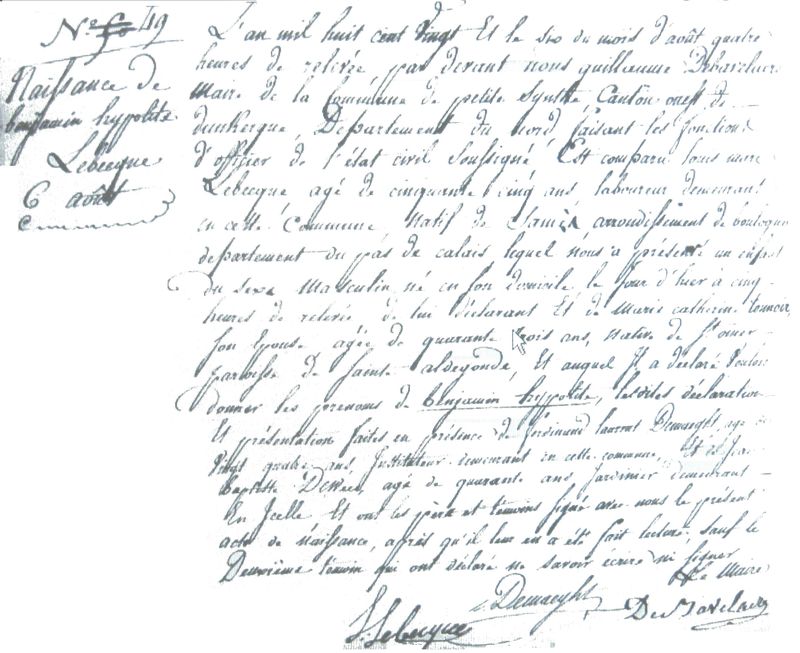 N.° 49
Naissance de
benjamin hyppolite
Lebecque
6 août
L'an mil huit cent vingt Et le six du mois d'août quatre
heures de relevée par devant nous guillaume Debavelaere
Maire de la Commune de petite Synthe Canton ouest de
dunkerque, Departement du nord faisant les fonctions
d'officier de l'état civil soussigné Est comparu louis marie
Lebecque agé de cinquante cinq ans laboureur demeurant
en cette Commune, natif de Samer arrondissement de boulogne
departement du pas de calais, lequel nous a présenté un enfant
du sexe Masculin né en son domicile le jour d'hier à cinq
heures de relevée de lui déclarant Et de Marie catherine
son Epouse agée de quarante trois ans, native de St omer
paroisse de Sainte aldegonde, Et auquel Il a déclaré Vouloir
donner les prenoms de benjamin hyppolite, lesdites déclaration
Et présentation faites en présence de ferdinand laurent Demaeght, age de
Vingt quatre ans Instituteur demeurant en cette commune, Et de Jean
baptiste agé de quarante ans Jardinier demeurant
En Icelle Et ont les père et témoins signé avec nous le présent
acte de Naissance, après qu'il leur en a été fait lecture, sauf le
Deuxième témoin qui ont déclaré ne savoir écrire ni signer
Le Maire
Demaeght
DeBavelaere
Lebecque